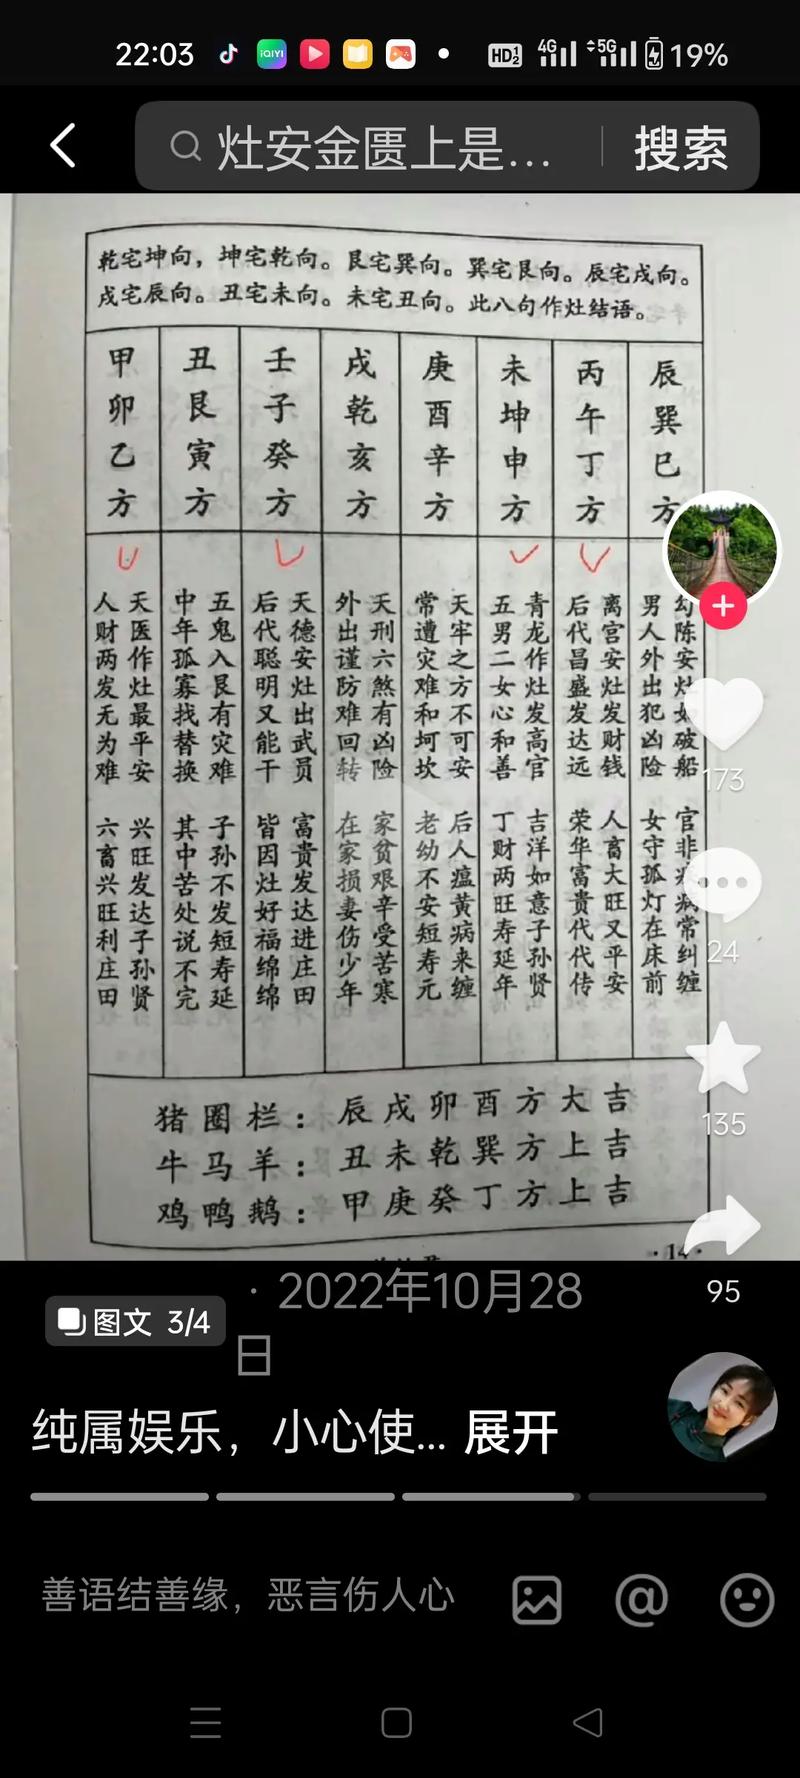 22:03
HD 1 2
4G
5G
19%
灶安金匮上是...
搜索
乾宅坤向，坤宅乾向。艮宅巽向。巽宅艮向。辰宅戌向。
戌宅辰向。丑宅未向。未宅丑向。此八句作灶结语。
辰巽巳方
勾陈安灶如破船 官非病常纠缠
男人外出犯凶险 女守孤灯在床前
丙午丁方
离宫安灶发财钱 人畜大旺又平安
后代昌盛发达远 荣华富贵代代传
未坤申方
青龙作灶发高官 吉洋如意子孙贤
五男二女心和善 丁财两旺寿延年
庚酉辛方
天牢之方不可安 后人瘟黄病来缠
常遭灾难和坷坎 老幼不安短寿元
戌乾亥方
天刑六煞有凶险 家贫艰辛受苦寒
外出谨防难回转 在家损妻伤少年
壬子癸方
天德安灶出武员 富贵发达进庄田
后代聪明又能干 皆因灶好福绵绵
丑艮寅方
五鬼入艮有灾难 子孙不发短寿延
中年孤寡找替换 其中苦处说不完
甲卯乙方
天医作灶最平安 兴旺发达子孙贤
人财两发无为难 六畜兴旺利庄田
猪圈栏：辰戌卯酉方大吉
牛马羊：丑未乾巽方上吉
鸡鸭鹅：甲庚癸丁方上吉
·14·
173
24
135
95
图文 3/4
· 2022年10月28
日
纯属娱乐，小心使... 展开
善语结善缘，恶言伤人心